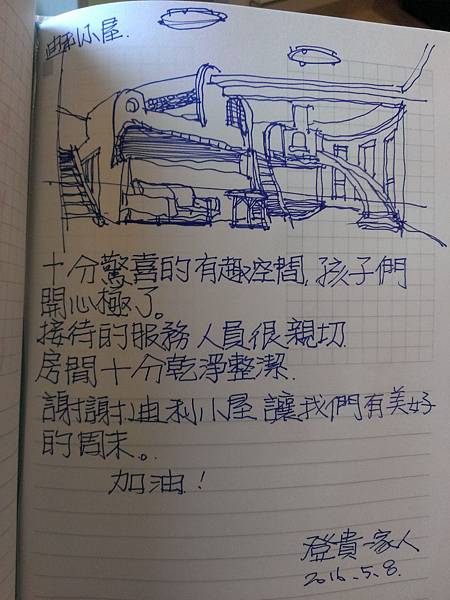 迪利小屋.
十分驚喜的有趣空間, 孩子們
開心極了。
接待的服務人員很親切.
房間十分乾淨整潔.
謝謝迪利小屋 讓我們有美好
的周末。
加油！
登貴一家人
2016.5.8.